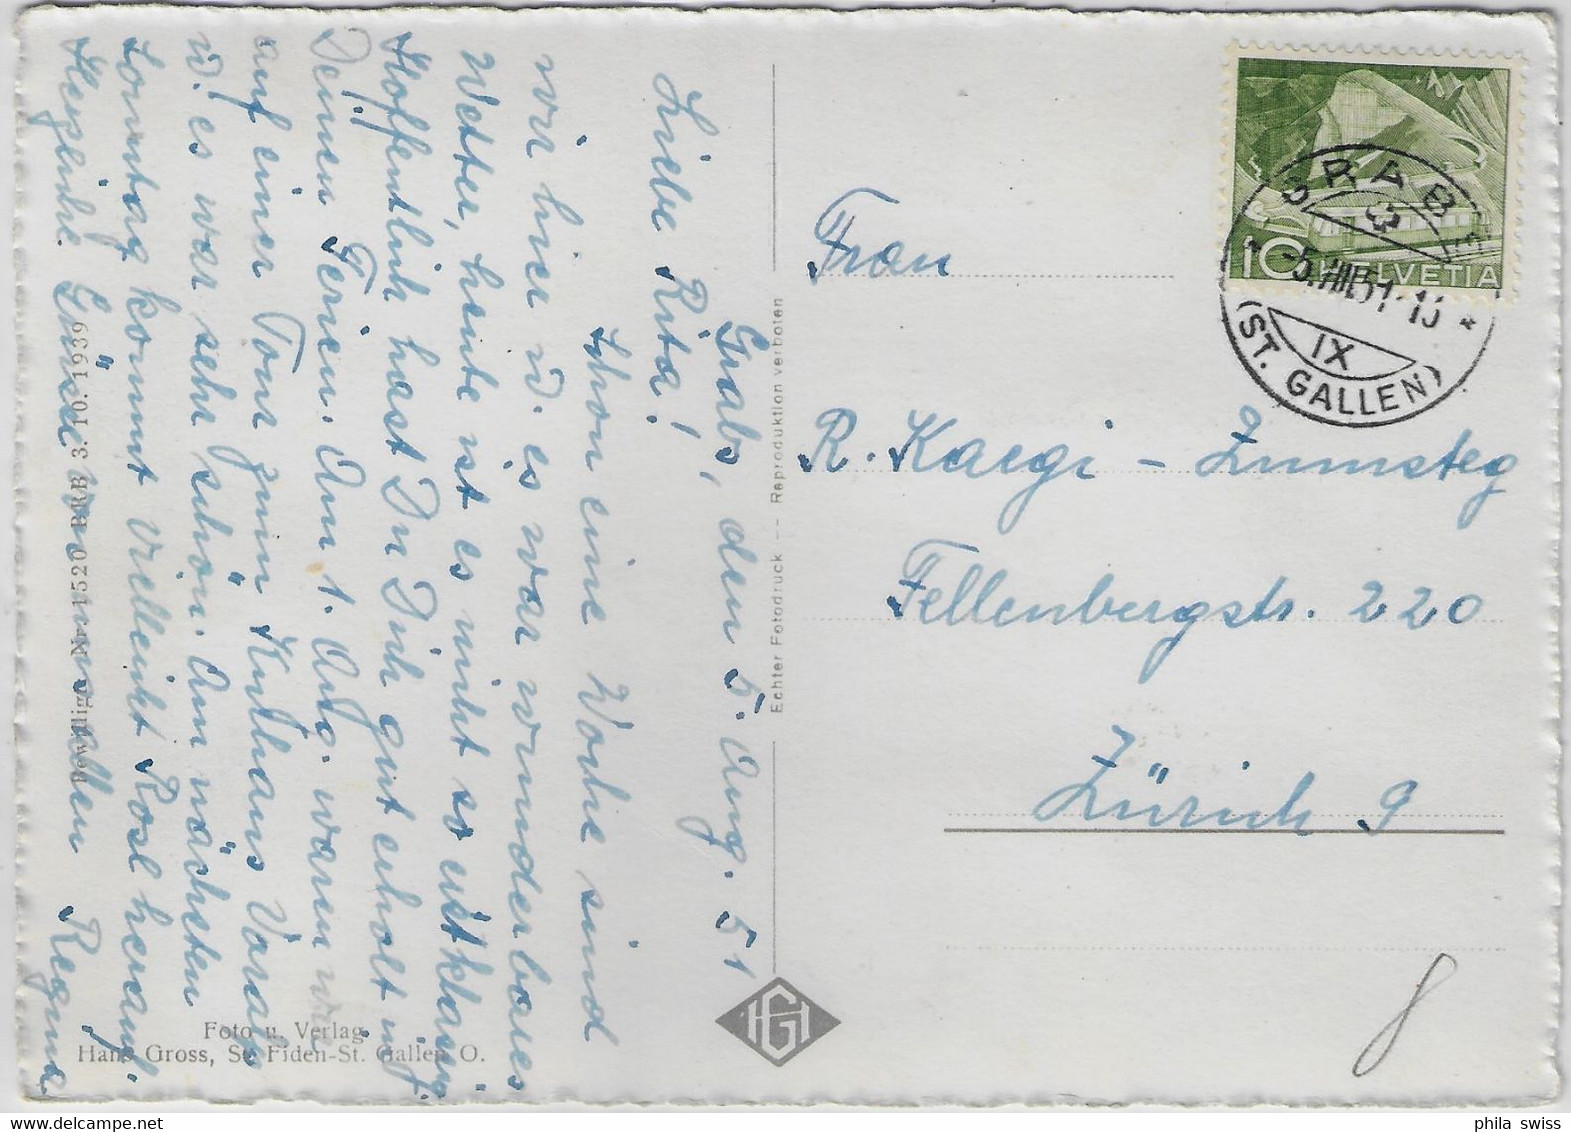 Grabs, den 5. Aug. 51
Liebe Rita!
Schon eine Woche sind
wir hier u. es war wunderbares
Wetter, heute ist es nicht so
Hoffentlich hast Du Dich gut erholt in
Deinen Ferien. Am 1. Aug. waren wir
auf einer Tour zum Kurhaus Voralp
u. es war sehr schön. Am nächsten
Sonntag kommt vielleicht Rosl herauf.
Herzliche Grüsse von allen Regina
Bewilligt Nr. 1520 BRB 3. 10. 1939
Foto u. Verlag
Hans Gross, St. Fiden-St. Gallen O.
Echter Fotodruck -- Reproduktion verboten
HG
10 HELVETIA
GRABS
-5.VIII.51-
IX
(ST. GALLEN)
Frau
R. Kaegi - Zumsteg
Fellenbergstr. 220
Zürich 9
phila swiss